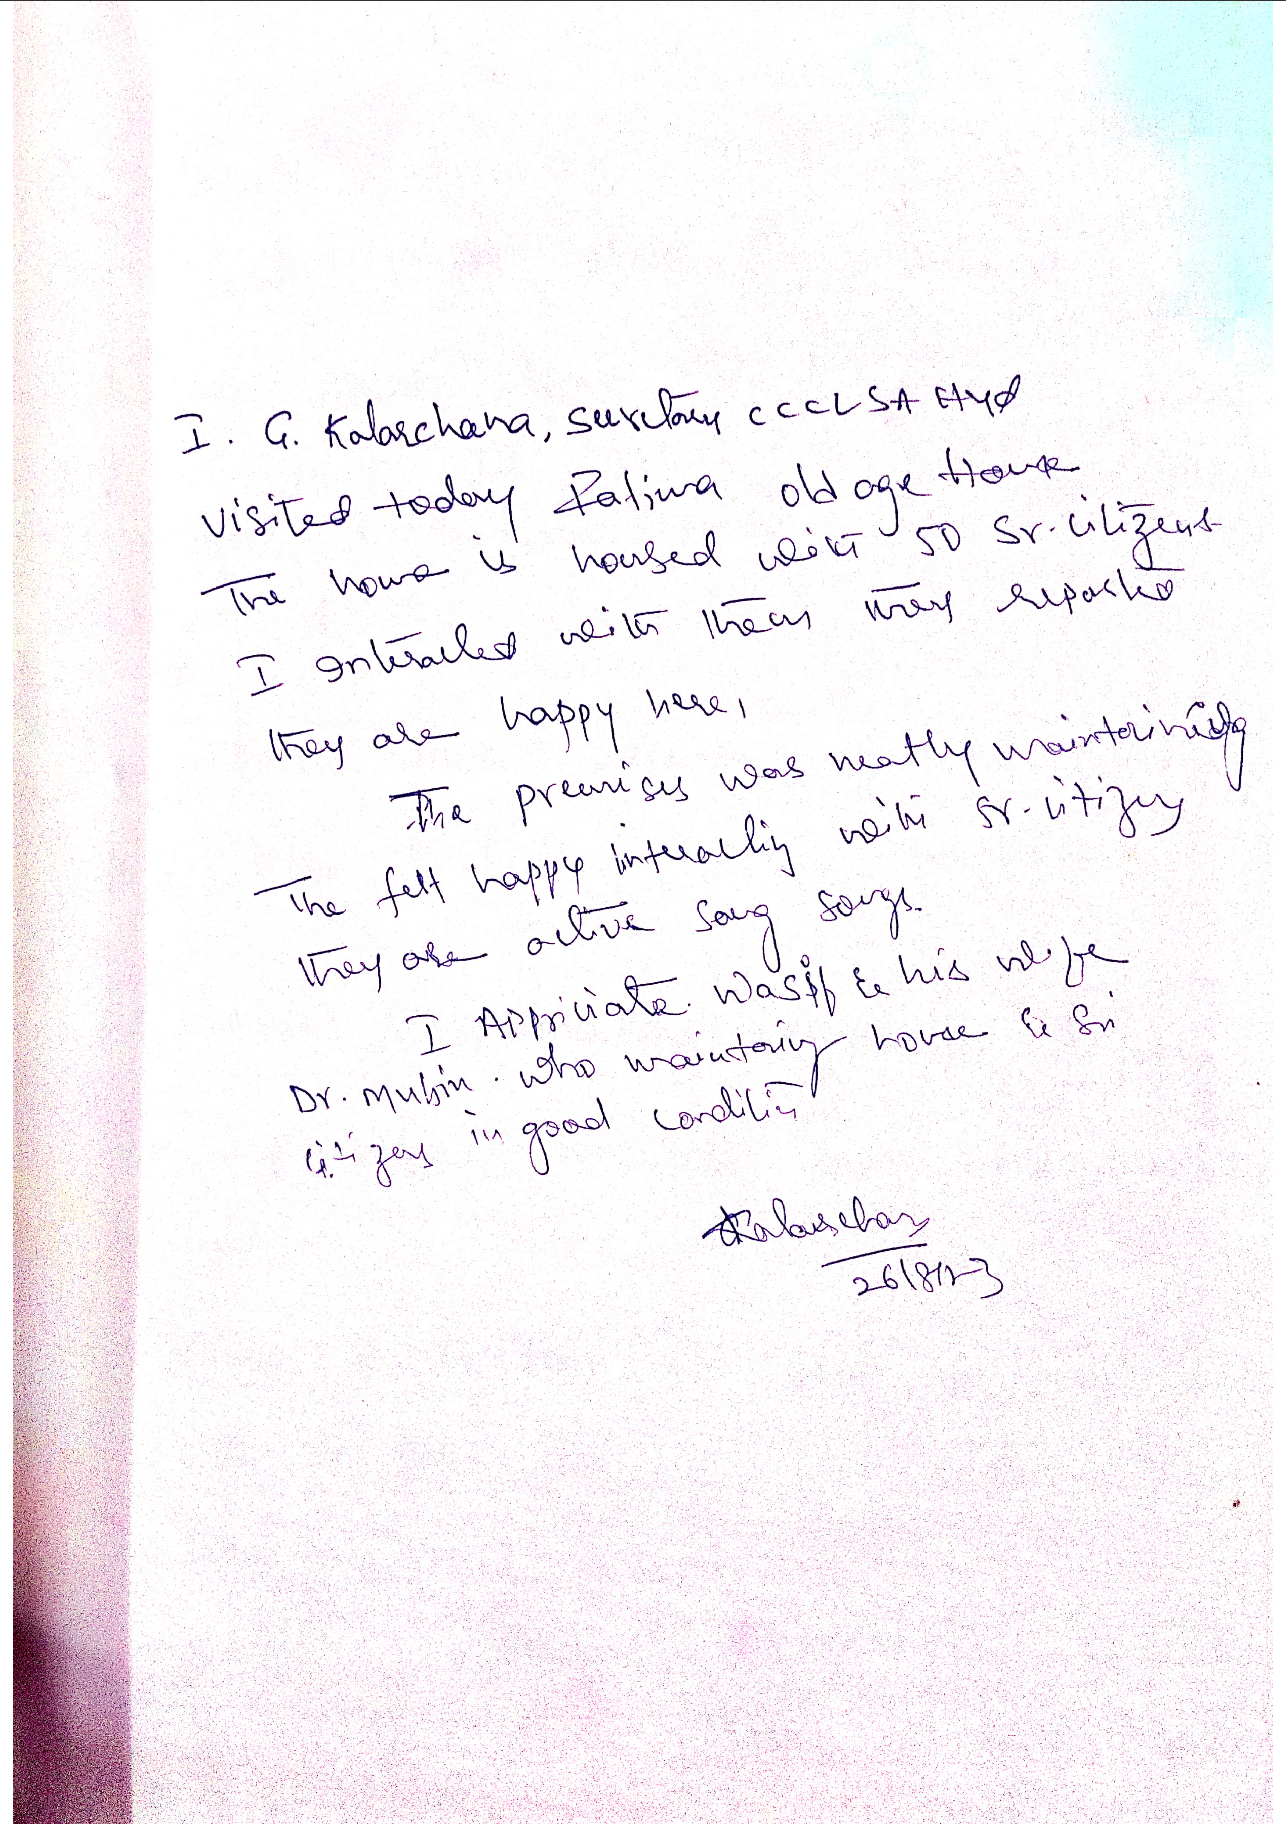 I. G. Kalarchana, Secretary CCCLSA Hyd
visited today Fatima old age Home
The home is housed with 50 Sr. citizens
I interacted with them they reported
they are happy here,
The premises was neatly maintaining
The felt happy interacting with Sr. citizens
they are active sang songs.
I Appriciate Wasif & his wife
Dr. Mubin. who maintaing house & Sr
citizens in good condition
26/8/23